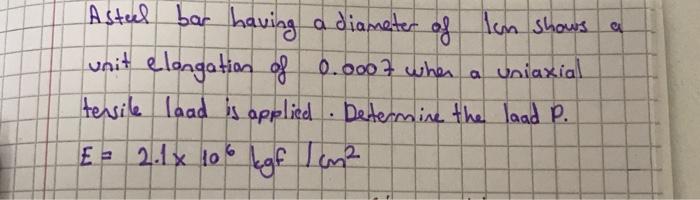 A steel bar having a diameter of 1cm shows a
unit elongation of 0.0007 when a uniaxial
tensile laad is applied. Determine the laad P.
E = 2.1 x 10⁶ kgf / cm²